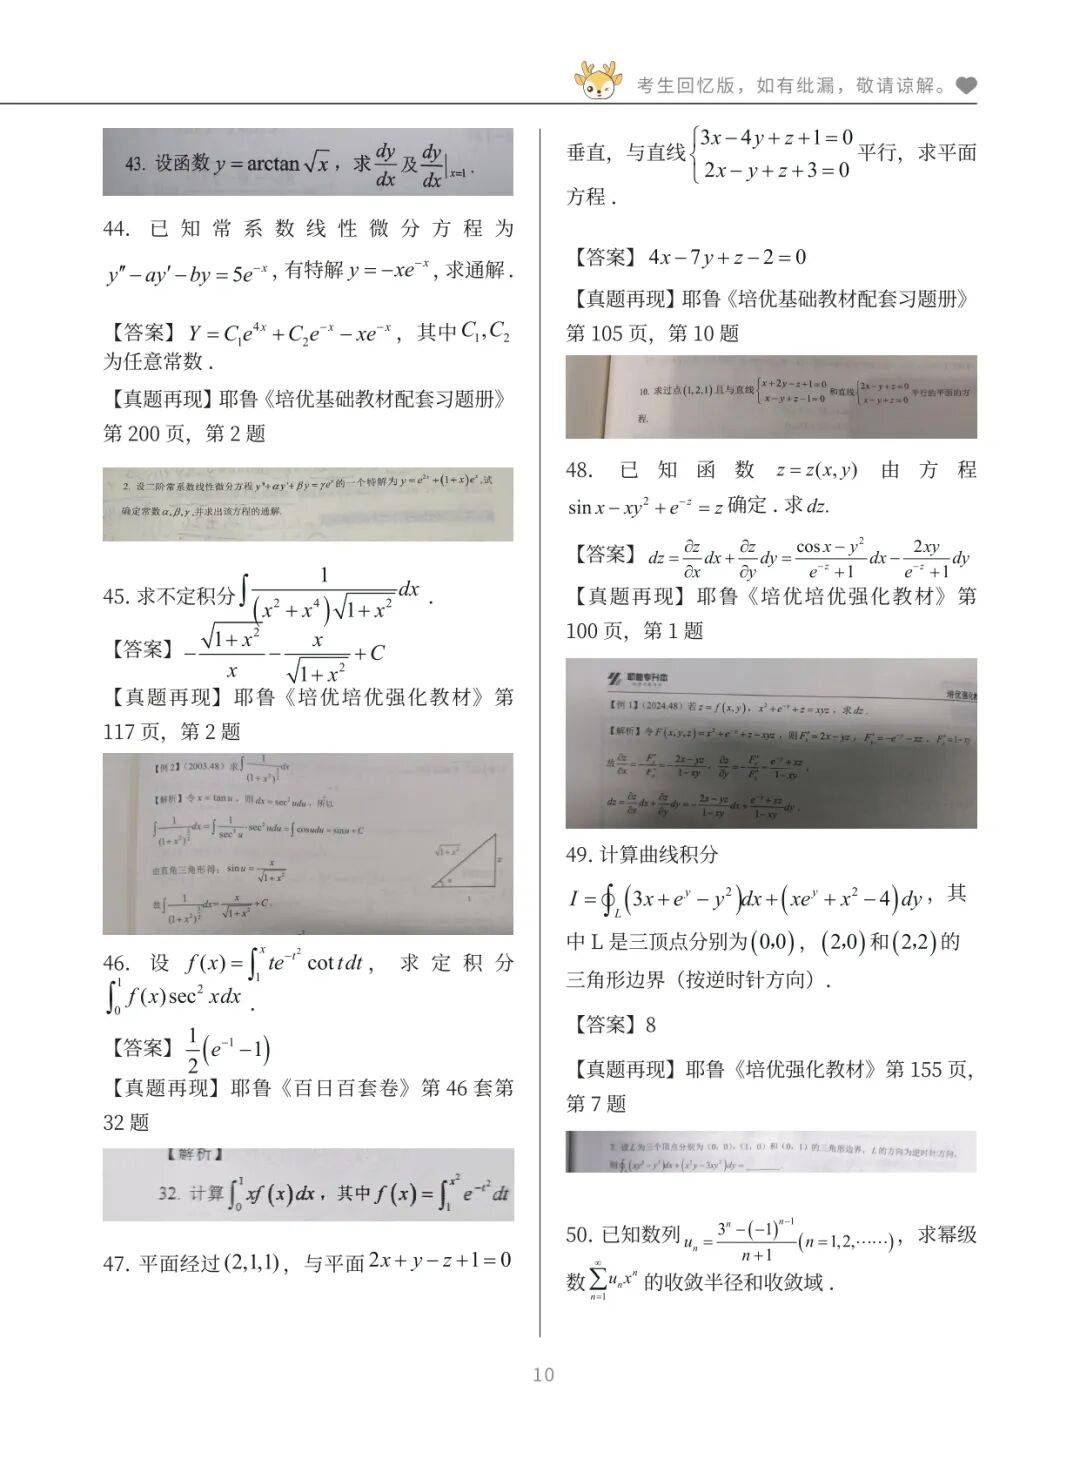 考生回忆版，如有纰漏，敬请谅解。
43. 设函数 y = arctan √x ，求 dy/dx 及 dy/dx|x=1 .
44. 已知常系数线性微分方程为
y″ − ay′ − by = 5e^{-x}, 有特解 y = −xe^{-x}, 求通解 .
【答案】Y = C₁e^{4x} + C₂e^{-x} − xe^{-x}，其中 C₁, C₂
为任意常数 .
【真题再现】耶鲁《培优基础教材配套习题册》
第 200 页，第 2 题
2. 设二阶常系数线性微分方程 y″+αy′+βy=γe^x 的一个特解为 y=e^{2x}+(1+x)e^x, 试
确定常数 α,β,γ, 并求出该方程的通解.
45. 求不定积分 ∫ 1/((x²+x⁴)√(1+x²)) dx .
【答案】−√(1+x²)/x − x/√(1+x²) + C
【真题再现】耶鲁《培优培优强化教材》第
117 页，第 2 题
【例2】(2003.48) 求∫ 1/(1+x²)^{3/2} dx
【解析】令 x = tan u，则 dx = sec² u du，所以
∫ 1/(1+x²)^{3/2} dx = ∫ 1/sec³u · sec² u du = ∫ cos u du = sin u + C
由直角三角形得：sin u = x/√(1+x²)
√(1+x²)
x
u
1
故∫ 1/(1+x²)^{3/2} dx = x/√(1+x²) + C.
46. 设 f(x) = ∫₁^x te^{-t²} cot t dt，求定积分
∫₀¹ f(x) sec² x dx .
【答案】1/2 (e^{-1} − 1)
【真题再现】耶鲁《百日百套卷》第 46 套第
32 题
【解析】
32. 计算 ∫₀¹ xf(x)dx，其中 f(x) = ∫₁^{x²} e^{-t²} dt
47. 平面经过 (2,1,1)，与平面 2x + y − z + 1 = 0
垂直，与直线 {3x − 4y + z + 1 = 0
2x − y + z + 3 = 0 平行，求平面
方程 .
【答案】4x − 7y + z − 2 = 0
【真题再现】耶鲁《培优基础教材配套习题册》
第 105 页，第 10 题
10. 求过点 (1,2,1) 且与直线 {x+2y−z+1=0 x−y+z−1=0 和直线 {2x−y+z=0 x−y+z=0 平行的平面的方
程.
48. 已知函数 z = z(x, y) 由方程
sin x − xy² + e^{-z} = z 确定 . 求 dz.
【答案】dz = ∂z/∂x dx + ∂z/∂y dy = (cos x − y²)/(e^{-z} + 1) dx − 2xy/(e^{-z} + 1) dy
【真题再现】耶鲁《培优培优强化教材》第
100 页，第 1 题
耶鲁专升本
培优强化教
【例 1】(2024.48) 若 z = f(x, y)，x² + e^{-y} + z = xyz，求 dz .
【解析】令 F(x, y, z) = x² + e^{-y} + z − xyz，则 F′x = 2x − yz，F′y = −e^{-y} − xz，F′z = 1 − xy
故 ∂z/∂x = −F′x/F′z = −(2x−yz)/(1−xy)，∂z/∂y = −F′y/F′z = (e^{-y}+xz)/(1−xy)，
dz = ∂z/∂x dx + ∂z/∂y dy = −(2x−yz)/(1−xy) dx + (e^{-y}+xz)/(1−xy) dy .
49. 计算曲线积分
I = ∮_L (3x + e^y − y²)dx + (xe^y + x² − 4)dy，其
中 L 是三顶点分别为 (0,0)，(2,0) 和 (2,2) 的
三角形边界（按逆时针方向）.
【答案】8
【真题再现】耶鲁《培优强化教材》第 155 页，
第 7 题
7. 设 L 为三个顶点分别为 (0, 0), (1, 0) 和 (0, 1) 的三角形边界，L 的方向为逆时针方向，
则
50. 已知数列 uₙ = (3ⁿ − (−1)^{n−1})/(n+1) (n = 1,2,……)，求幂级
数 ∑_{n=1}^∞ uₙxⁿ 的收敛半径和收敛域 .
10